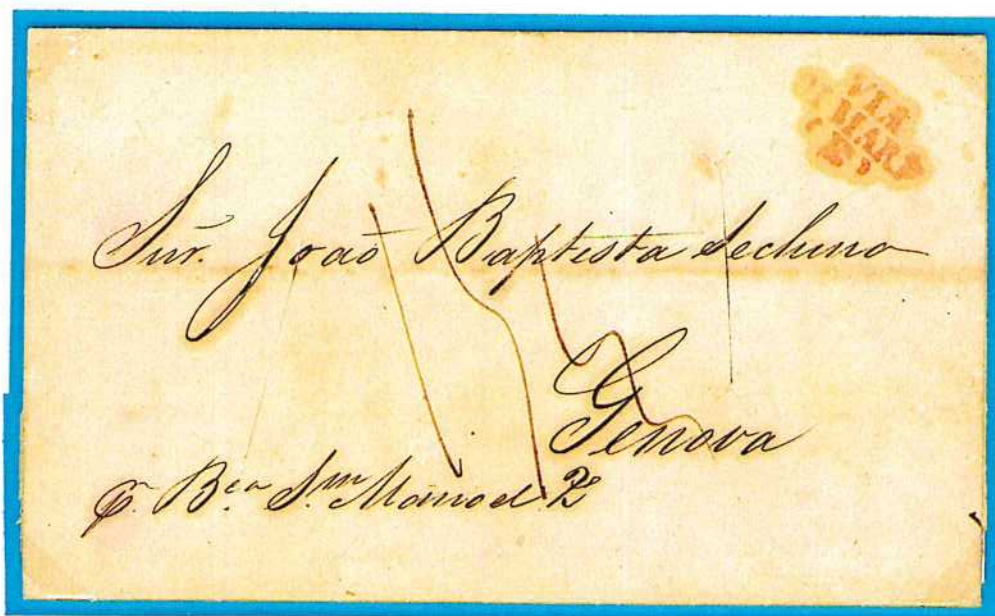 VIA
DI MARE
(E)
Snr. João Baptista Sechino
Genova
p. Bca Sm Manoel 2º